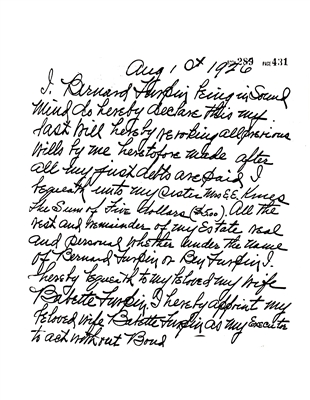 289 PAGE 431
Aug 1st 1926
I. Bernard Turpin being in Sound
mind do hereby declare this my
last will hereby revoking all previous
wills by me heretofore made after
all my just debts are paid I
bequeath unto my sister Mrs E.E. Kings
the Sum of Five Dollars ($5.00). All the
rest and remainder of my Estate real
and personal whether under the name
of Bernard Turpin or Ben Turpin I.
hereby bequeath to my beloved my wife
Babette Turpin, I hereby appoint my
beloved wife Babette Turpin as my Executor
to act without Bond